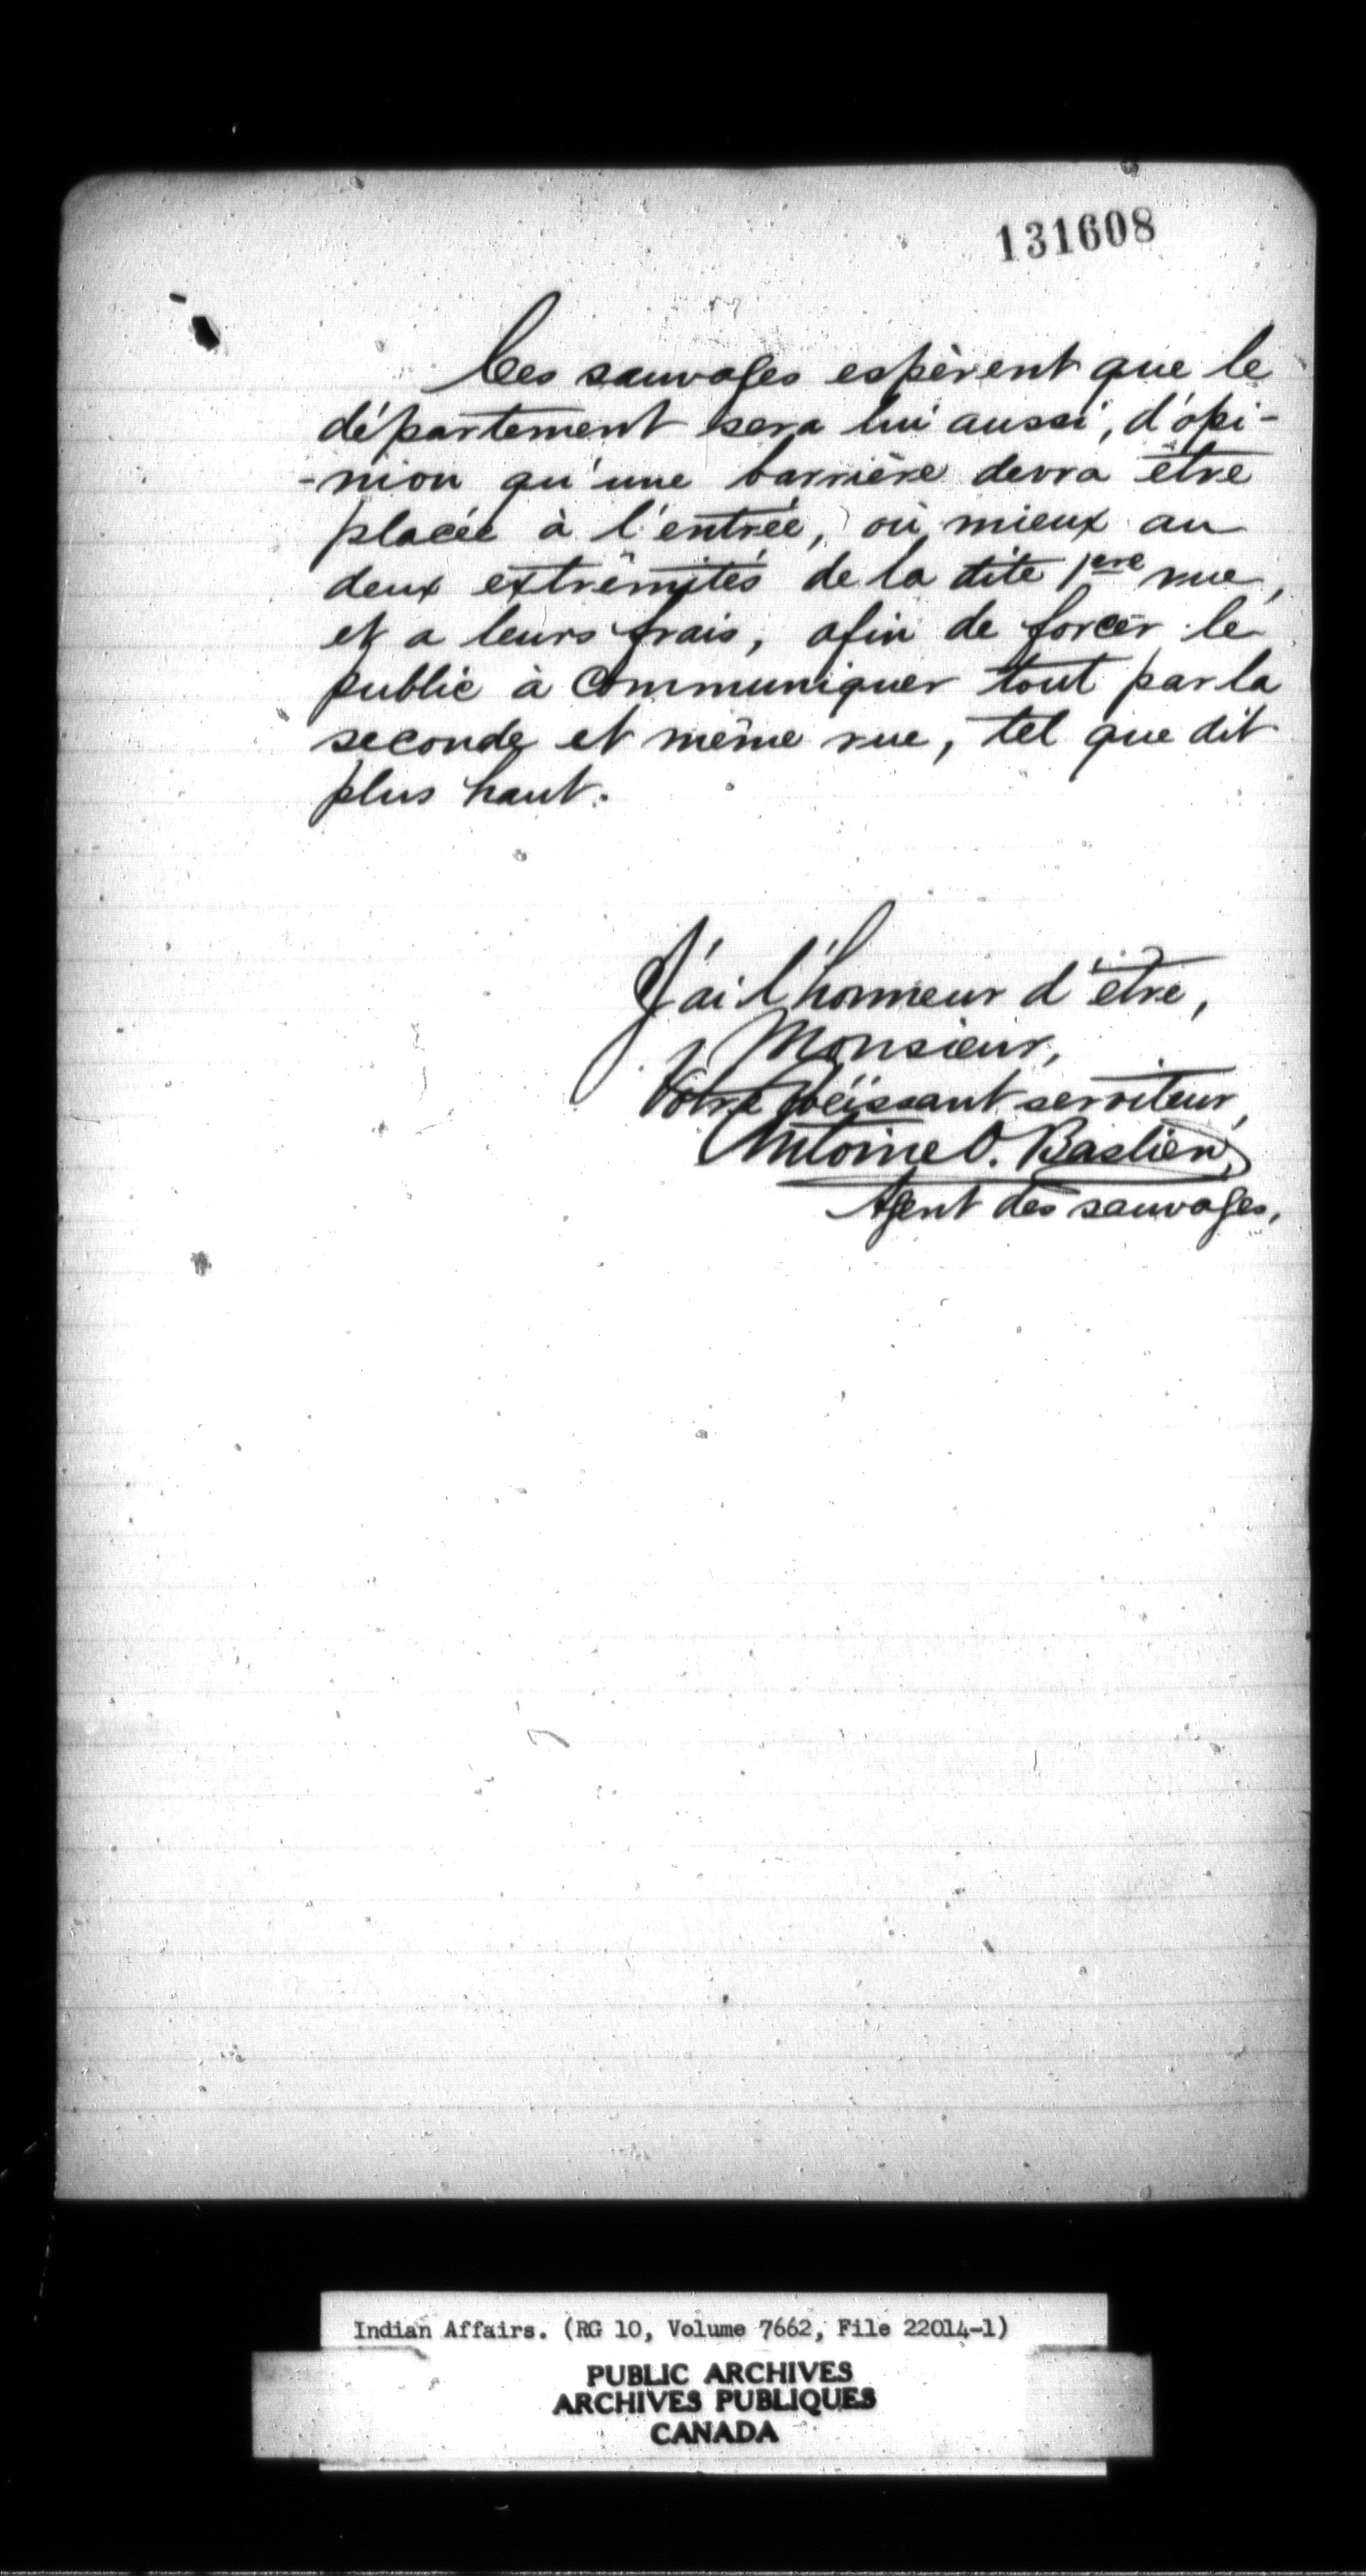 131608
Ces sauvages espèrent que le
département sera lui aussi, d'opi-
-nion qu'une barrière devra être
placée à l'entrée, où mieux au
deux extrêmités de la dite 1ere rue,
et a leurs frais, afin de forcer le
public à communiquer tout par la
seconde et même rue, tel que dit
plus haut.
J'ai l'honneur d'être,
Monsieur,
Votre obéissant serviteur,
Antoine O. Bastien,
Agent des sauvages,
Indian Affairs. (RG 10, Volume 7662, File 22014-1)
PUBLIC ARCHIVES
ARCHIVES PUBLIQUES
CANADA